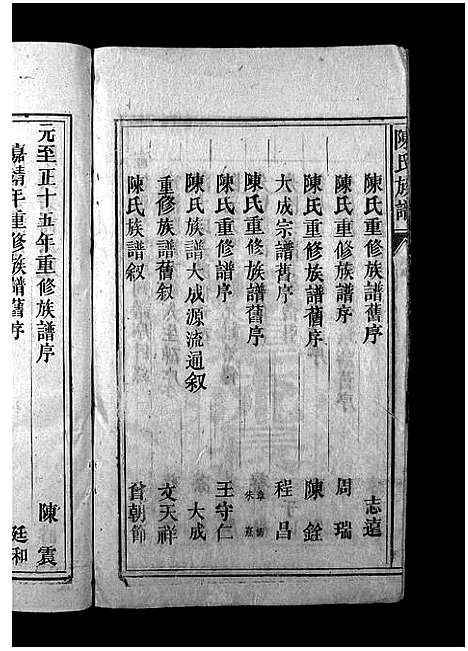 陳氏族譜
陳氏重修族譜舊序 志遠
陳氏重修族譜序 周瑞
陳氏重修族譜舊序 陳銓
大成宗譜舊序 程昌
陳氏重修族譜舊序 朱熹
陳氏重修譜序 王守仁
陳氏族譜大成源流通叙 大成
重修族譜舊叙 文天祥
陳氏族譜叙 曾朝節
元至正十五年重修族譜序 陳震
嘉靖年重修族譜舊序 廷和